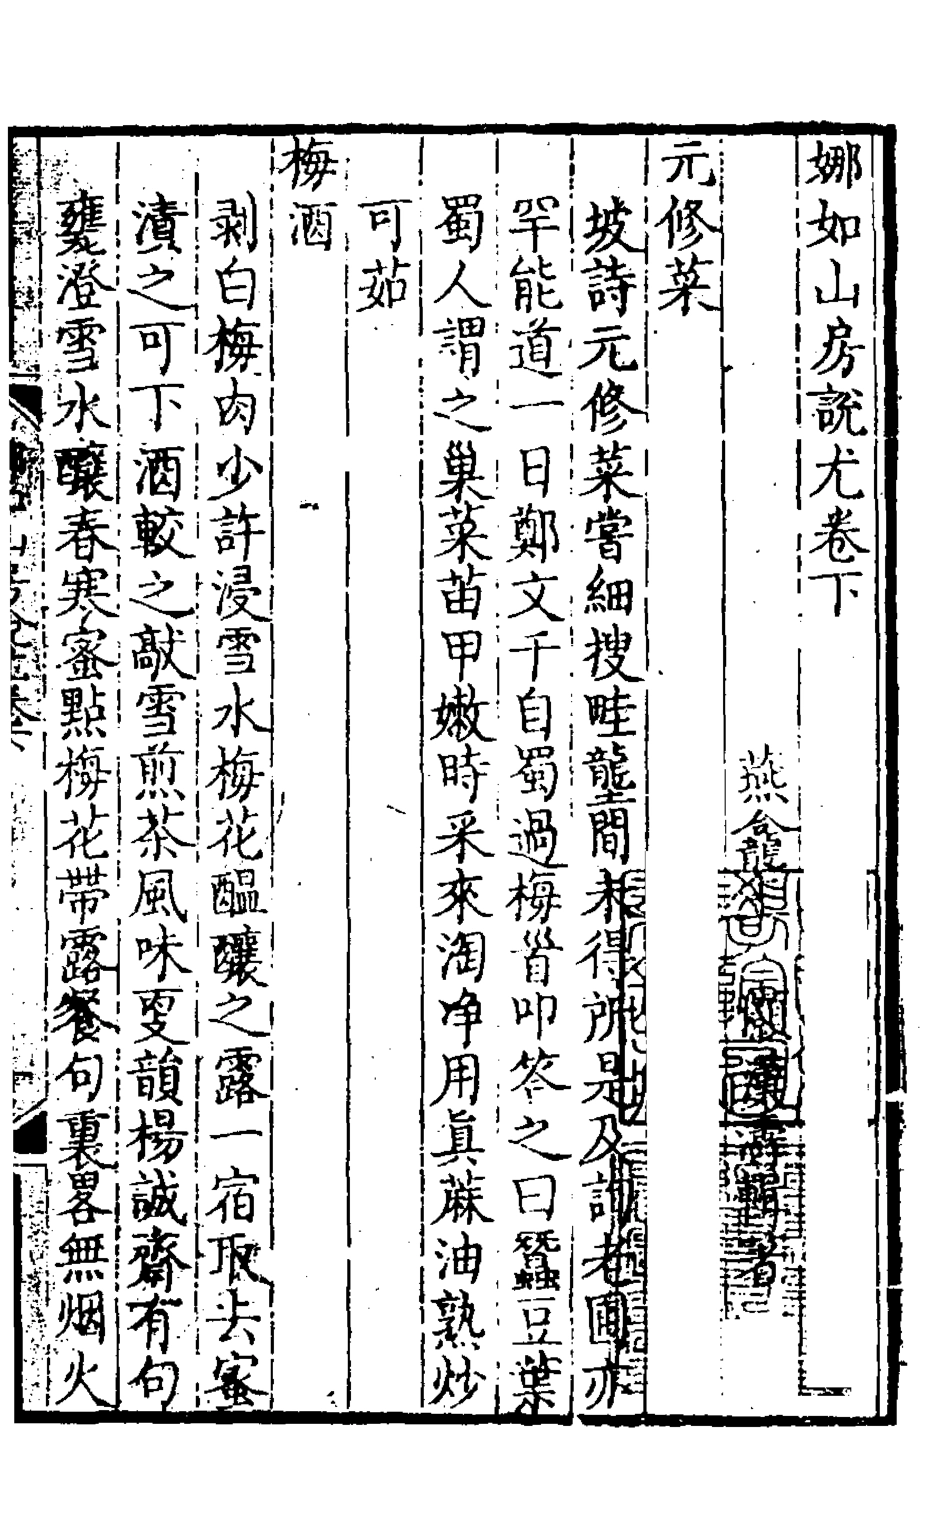 娜如山房說尤卷下
燕 龍 輯著
元修菜
坡詩元修菜嘗細搜畦壟間未得所是及詢老圃亦
罕能道一日鄭文千自蜀過梅㟭叩答之曰蠶豆葉
蜀人謂之巢菜苗甲嫩時采來淘净用眞蔴油熟炒
可茹
梅酒
剥白梅肉少許浸雪水梅花醞釀之露一宿取去蜜
漬之可下酒較之敲雪煎茶風味更韻楊誠齋有句
甕澄雪水釀春寒蜜點梅花帶露餐句裏畧無烟火